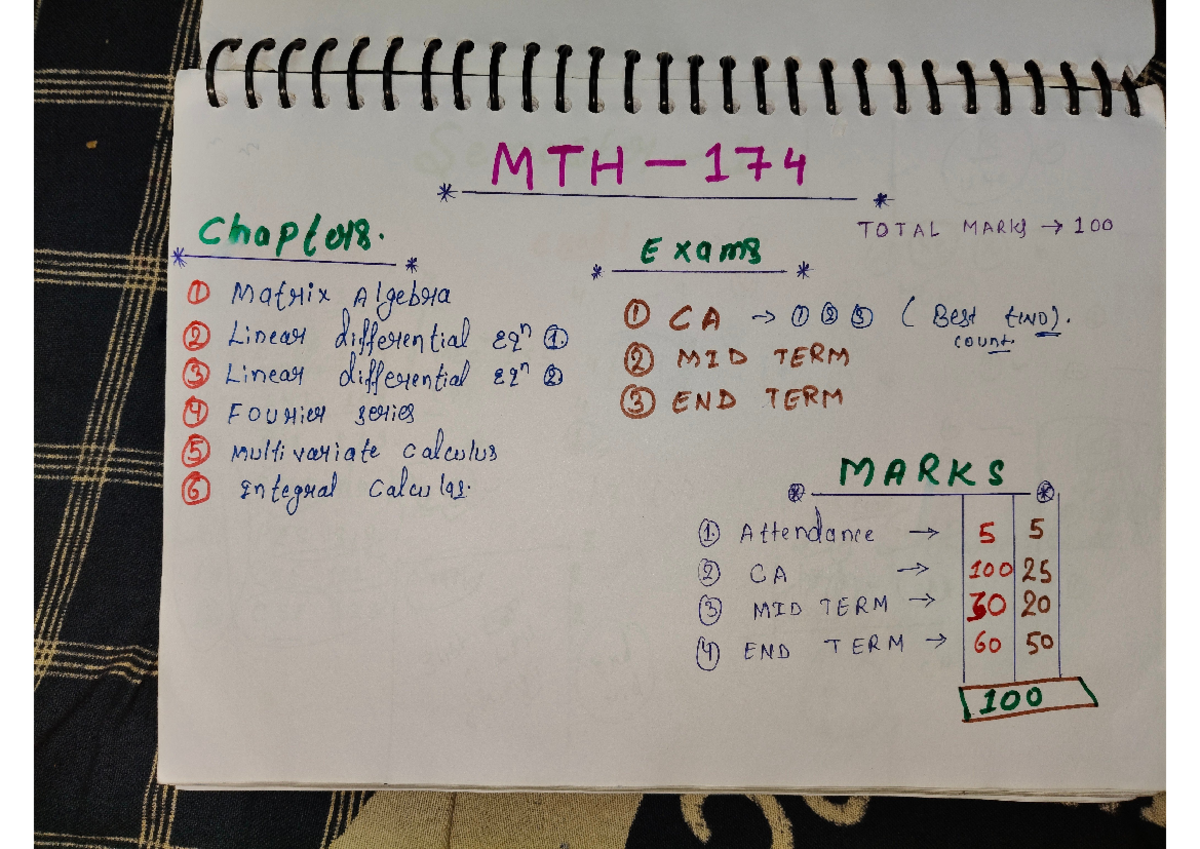 MTH - 174
TOTAL MARKS → 100
Chapters.
① Matrix Algebra
② Linear differential eqⁿ ①
③ Linear differential eqⁿ ②
④ Fourier series
⑤ Multivariate calculus
⑥ Integral calculas.
Exams
① CA → ① ② ③ ( Best two).
count.
② MID TERM
③ END TERM
MARKS
①. Attendance → 5 5
② CA → 100 25
③ MID TERM → 30 20
④ END TERM → 60 50
100